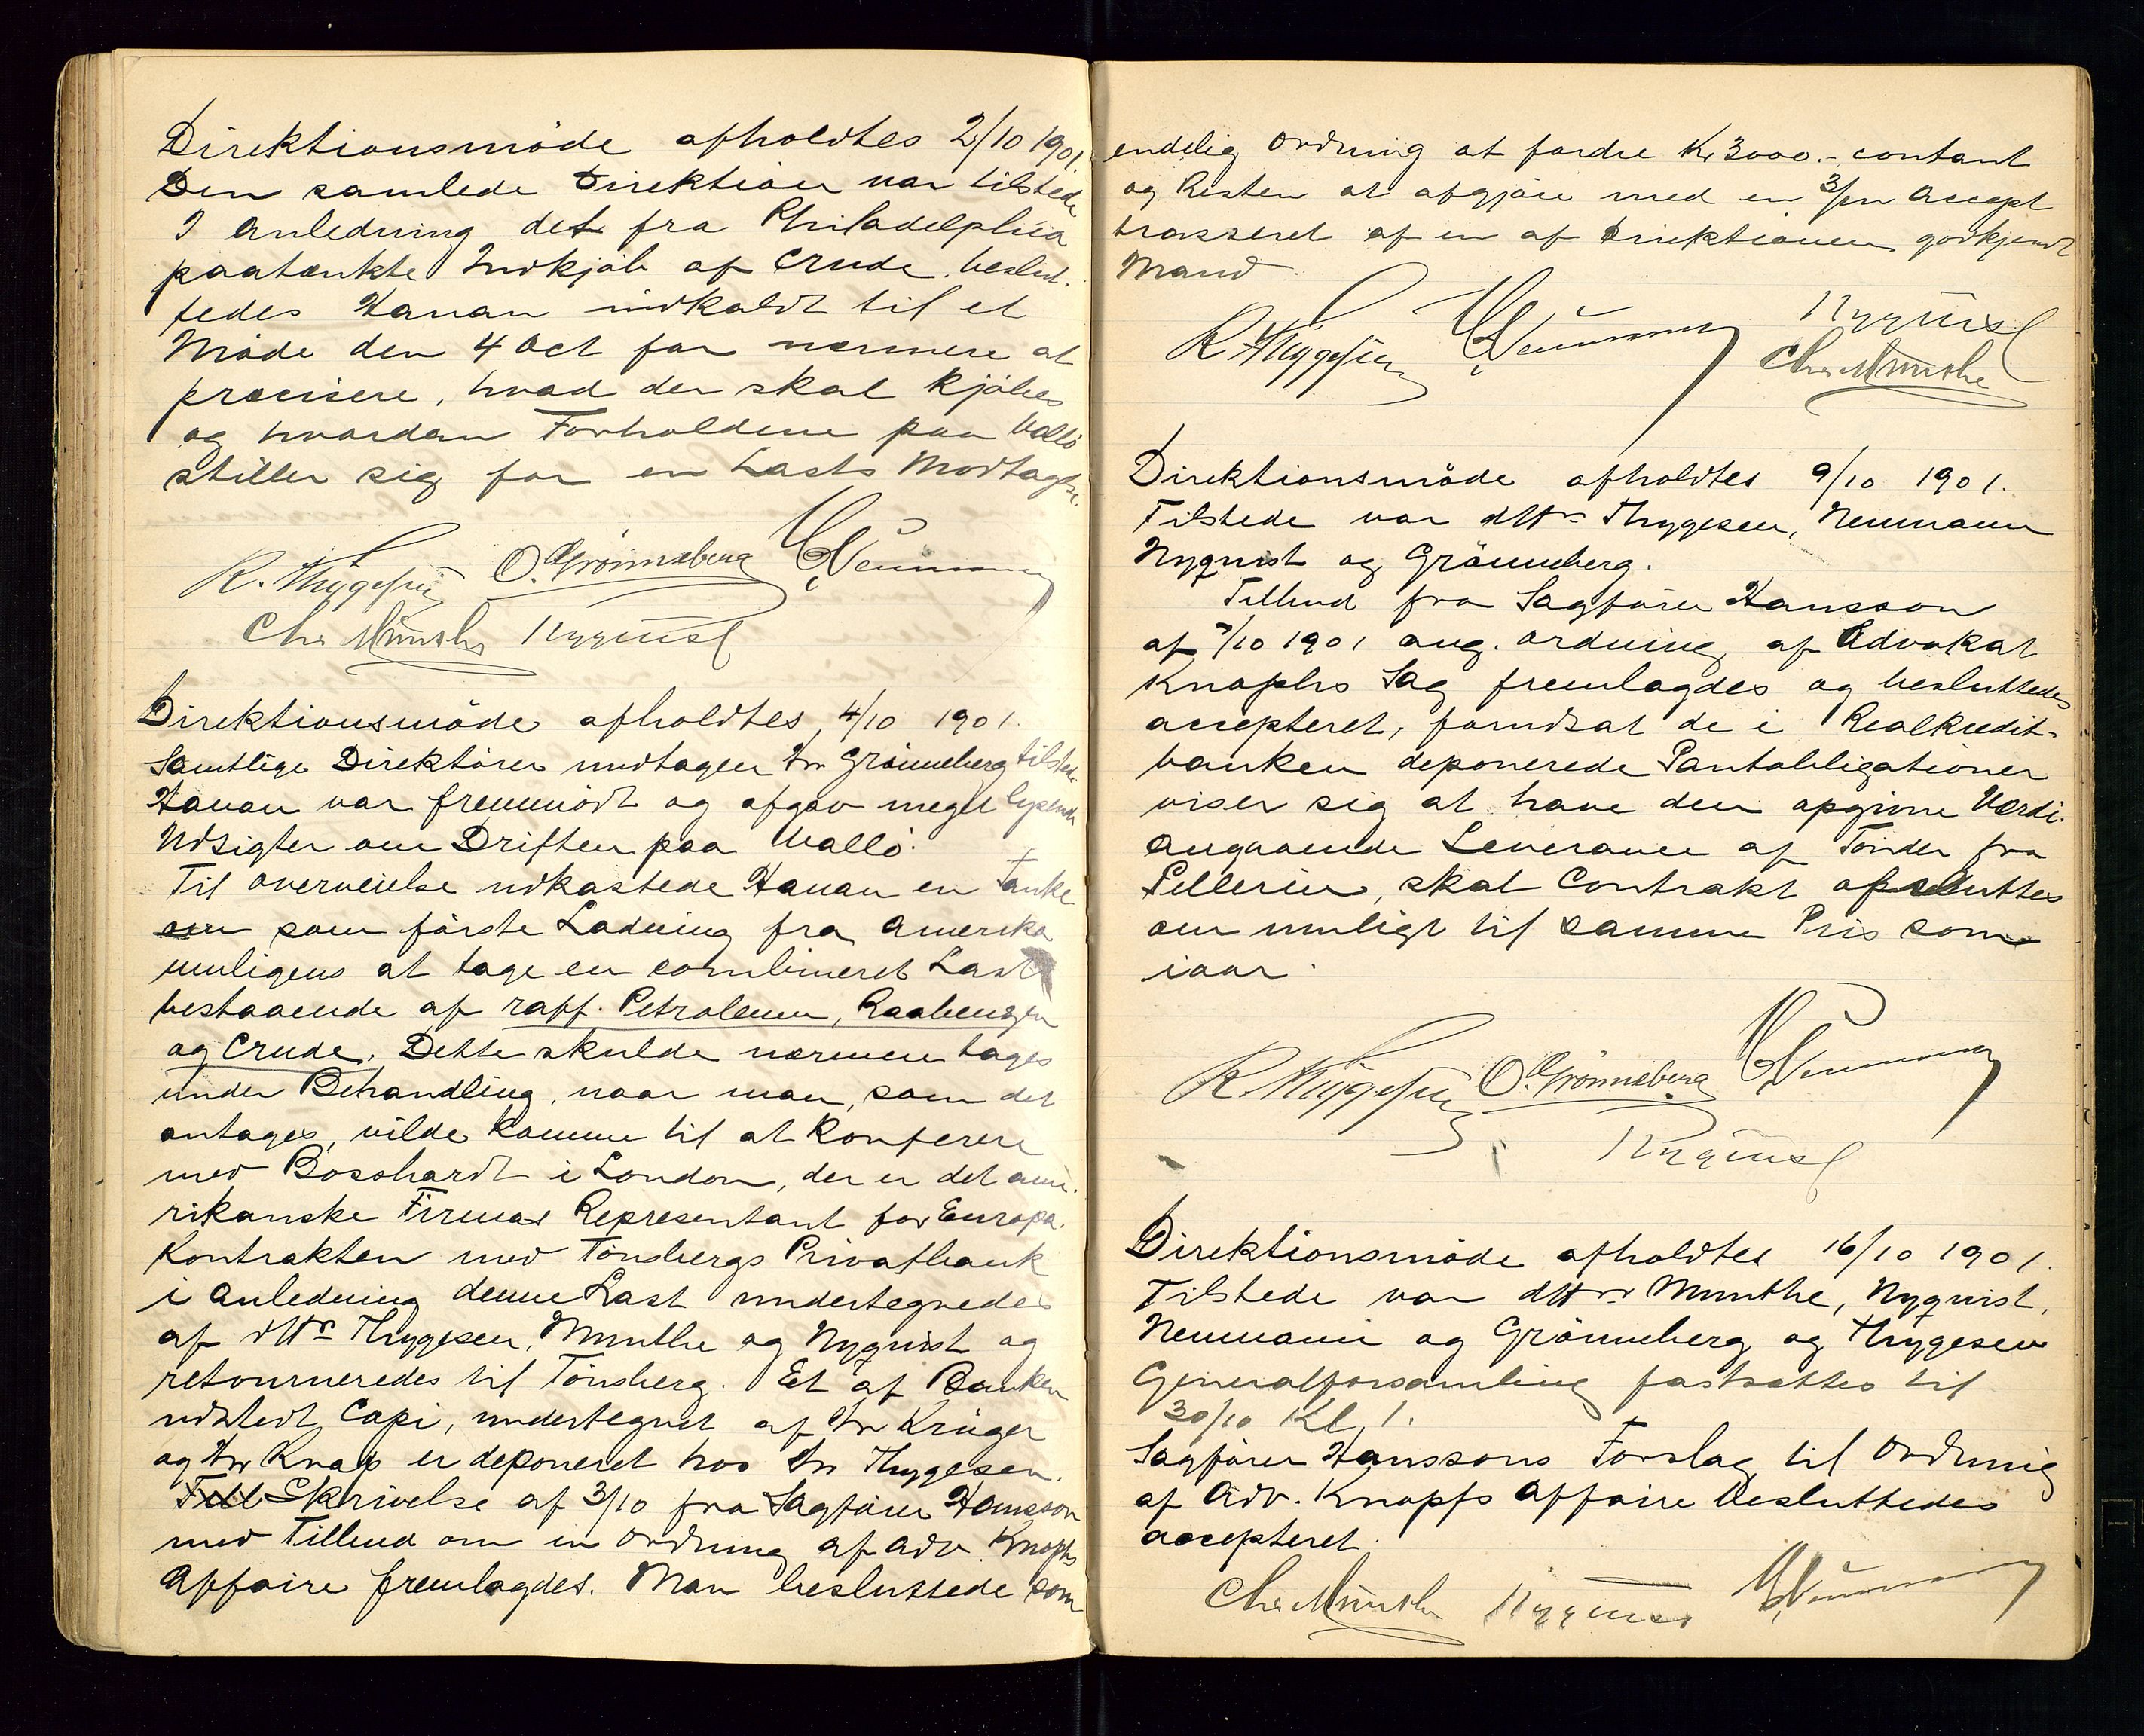 Direktionsmöde afholdtes 2/10 1901
Den samlede Direktion var tilstede
I Anledning det fra Philadelphia
paatænkte Indkjöb af Crude beslut-
tedes Hanan indkaldt til et
Möde den 4 Oct for nærmere at
præcisere, hvad der skal kjöbes
og hvordan Forholdene paa Vallö
stiller sig for en Lasts Modtagelse.
R. Thygesen O. Grönneberg Neumann
Chr Munthe Nyquist
Direktionsmöde afholdtes 4/10 1901.
Samtlige Direktörer undtagen Hr Grönneberg tilstede.
Hanan var fremmödt og afgav meget lysende
Udsigter om Driften paa Vallö.
Til Overveielse udkastede Hanan en Tanke
om som förste Ladning fra Amerika
muligens at tage en combineret Last
bestaaende af raff. Petroleum, Raabenzin
og Crude. Dette skulde nærmere tages
under Behandling, naar man, som det
antages, vilde komme til at konferere
med Bosshardt i London, der er det ame-
rikanske Firmas Representant for Europa.
Kontrakten med Tönsbergs Privatbank
i Anledning denne Last undertegnedes
af dHr Thygesen, Munthe og Nyquist og
retourneredes til Tönsberg. Et af Banken
udstedt Copi, undertegnet af Hr Krüger
og Hr Knap er deponeret hos Hr Thygesen.
Skrivelse af 3/10 fra Sagförer Hansson
med Tilbud om en Ordning af Adv Knophs
Affaire fremlagdes. Man besluttede som
endelig Ordning at fordre Kr 3000.- contant
og Resten at afgjöre med en 3/m Accept
trasseret af en af Direktionen godkjendt
Mand
R. Thygesen Neumann Nyquist
Chr Munthe
Direktionsmöde afholdtes 9/10 1901.
Tilstede var dHrr Thygesen, Neumann
Nyquist og Grönneberg.
Tilbud fra Sagförer Hansson
af 7/10 1901 ang. Ordning af Advokat
Knophs Sag fremlagdes og besluttedes
accepteret, forudsat de i Realkredit-
banken deponerede Pantobligationer
viser sig at have den opgivne Værdi.
Angaaende Leverance af Tönder fra
Pellerin, skal Contrakt afsluttes
om muligt til samme Pris som
iaar.
R. Thygesen O. Grönneberg Neumann
Nyquist
Direktionsmöde afholdtes 16/10 1901.
Tilstede var dHrr Munthe, Nyquist,
Neumann og Grönneberg og Thygesen
Generalforsamling fastsattes til
30/10 Kl 1.
Sagförer Hanssons Forslag til Ordning
af Adv. Knophs Affaire besluttedes
accepteret.
Chr Munthe Nyquist Neumann